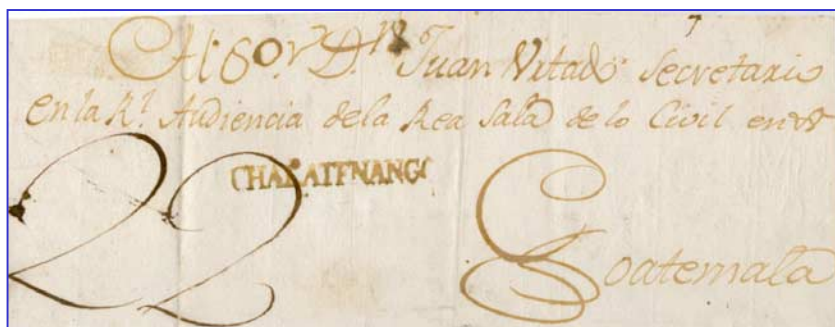 Al Sor. Dn. Juan Vitado Secretario
en la Rl. Audiencia de la Rea Sala de lo Civil en
CHALATENANGO
22
Goatemala